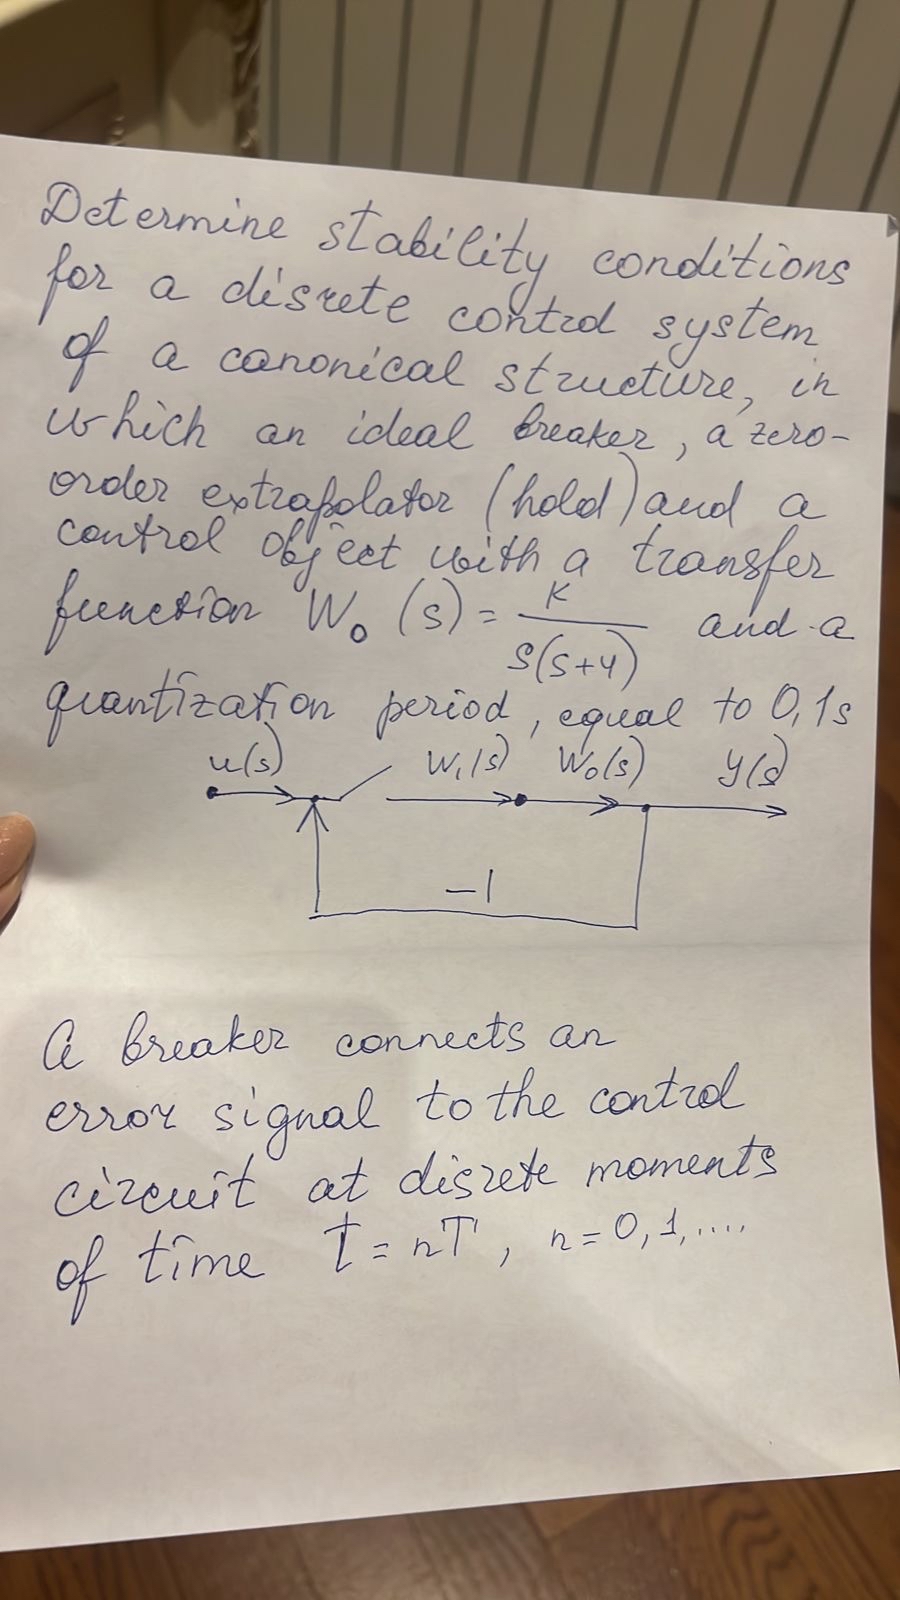 Determine stability conditions
for a discrete control system
of a canonical structure, in
which an ideal breaker, a zero-
order extrapolator (hold) and a
control object with a transfer
function W₀(s) = K / s(s+4) and a
quantization period, equal to 0,1s
u(s) W₁(s) W₀(s) y(s)
-1
A breaker connects an
error signal to the control
circuit at discrete moments
of time t = nT, n = 0, 1, ....